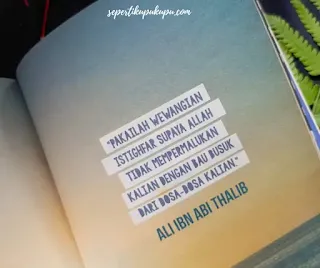 sepertikupukupu.com
"PAKAILAH WEWANGIAN
ISTIGHFAR SUPAYA ALLAH
TIDAK MEMPERMALUKAN
KALIAN DENGAN BAU BUSUK
DARI DOSA-DOSA KALIAN."
ALI IBN ABI THALIB